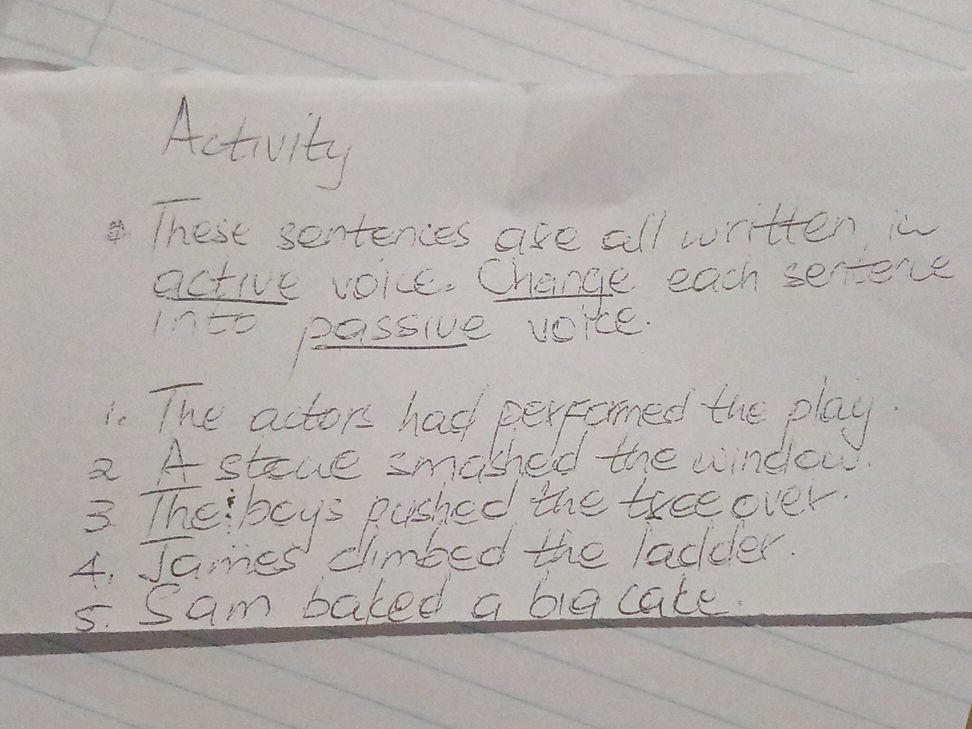 Activity
* These sentences are all written in
active voice. Change each sentence
into passive voice.
1. The actors had performed the play.
2 A stone smashed the window.
3 The boys pushed the tree over.
4. James climbed the ladder.
5. Sam baked a big cake.